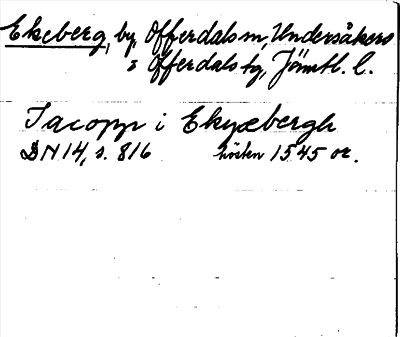 Ekeberg, by, Offerdals sn, Undersåkers
o Offerdals tg, Jämtl. l.
Jacopp i Ekyxebergh
DN 14, s. 816 hösten 1545 or.